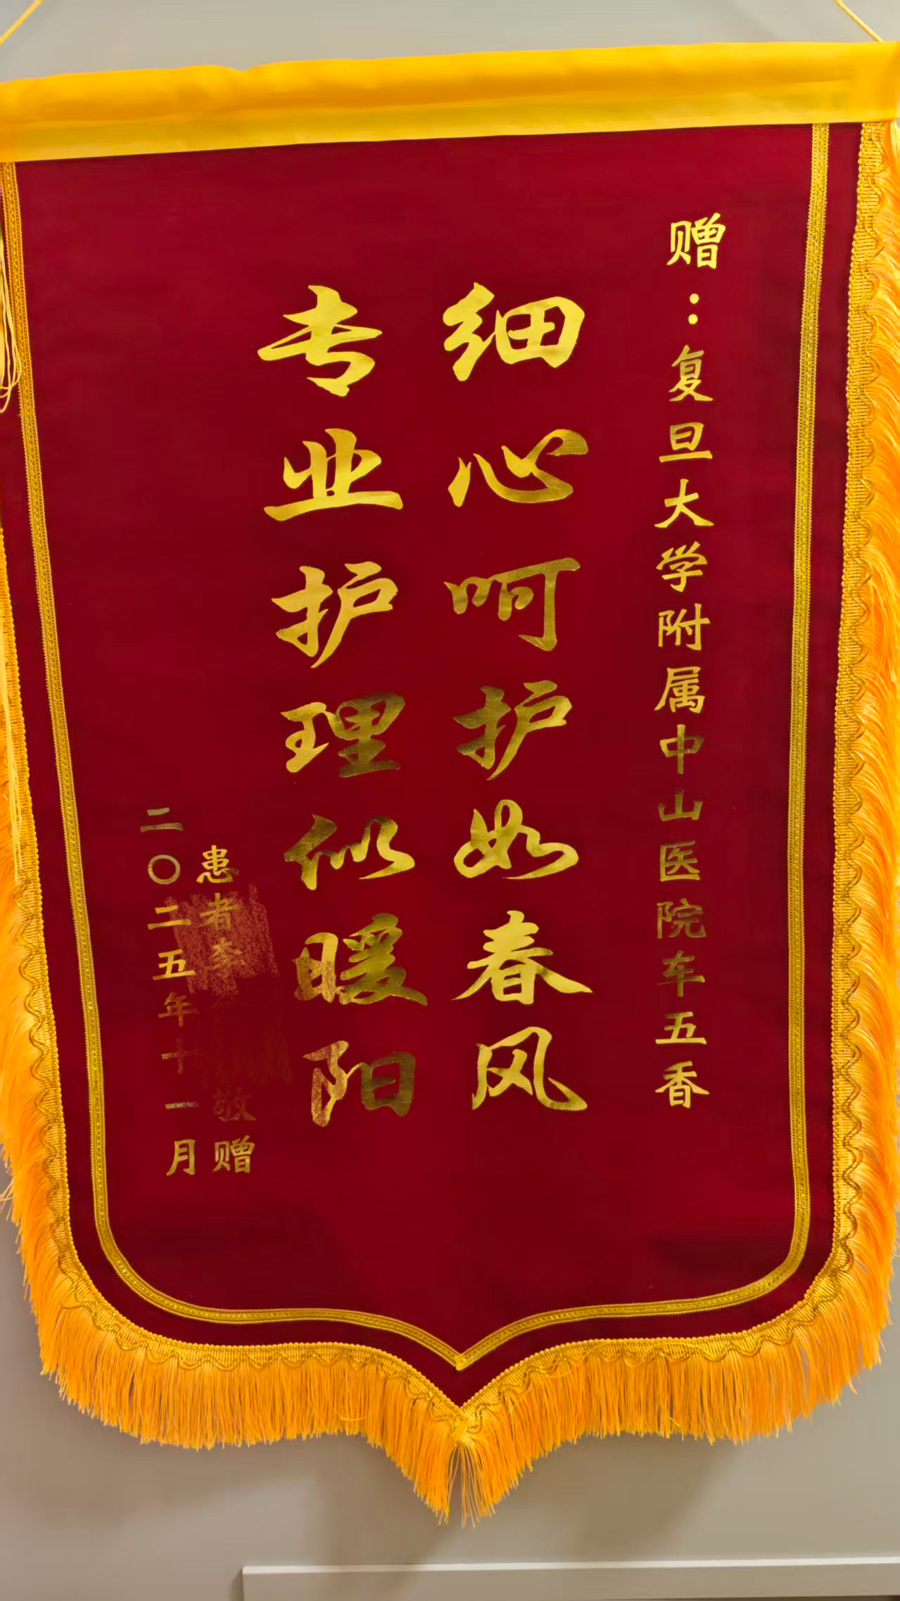 赠：复旦大学附属中山医院车五香
细心呵护如春风
专业护理似暖阳
患者李 敬赠
二〇二五年十一月